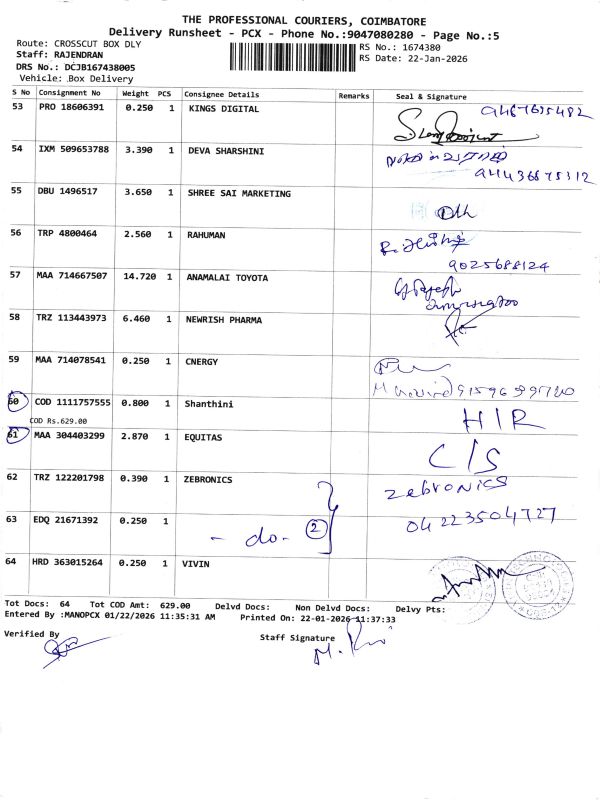 THE PROFESSIONAL COURIERS, COIMBATORE
Delivery Runsheet - PCX - Phone No.:9047080280 - Page No.:5
Route: CROSSCUT BOX DLY
RS No.: 1674380
Staff: RAJENDRAN
RS Date: 22-Jan-2026
DRS No.: DCJB167438005
Vehicle: Box Delivery
S No Consignment No Weight PCS Consignee Details Remarks Seal & Signature
53 PRO 18606391 0.250 1 KINGS DIGITAL
54 IXM 509653788 3.390 1 DEVA SHARSHINI
55 DBU 1496517 3.650 1 SHREE SAI MARKETING
56 TRP 4800464 2.560 1 RAHUMAN
9025688124
57 MAA 714667507 14.720 1 ANAMALAI TOYOTA
58 TRZ 113443973 6.460 1 NEWRISH PHARMA
59 MAA 714078541 0.250 1 CNERGY
60 COD 1111757555 0.800 1 Shanthini H/R
COD Rs.629.00
61 MAA 304403299 2.870 1 EQUITAS C/S
62 TRZ 122201798 0.390 1 ZEBRONICS zebronics
63 EDQ 21671392 0.250 1 - do - 2 04223504727
64 HRD 363015264 0.250 1 VIVIN
Tot Docs: 64 Tot COD Amt: 629.00 Delvd Docs: Non Delvd Docs: Delvy Pts:
Entered By :MANOPCX 01/22/2026 11:35:31 AM Printed On: 22-01-2026 11:37:33
Verified By
Staff Signature